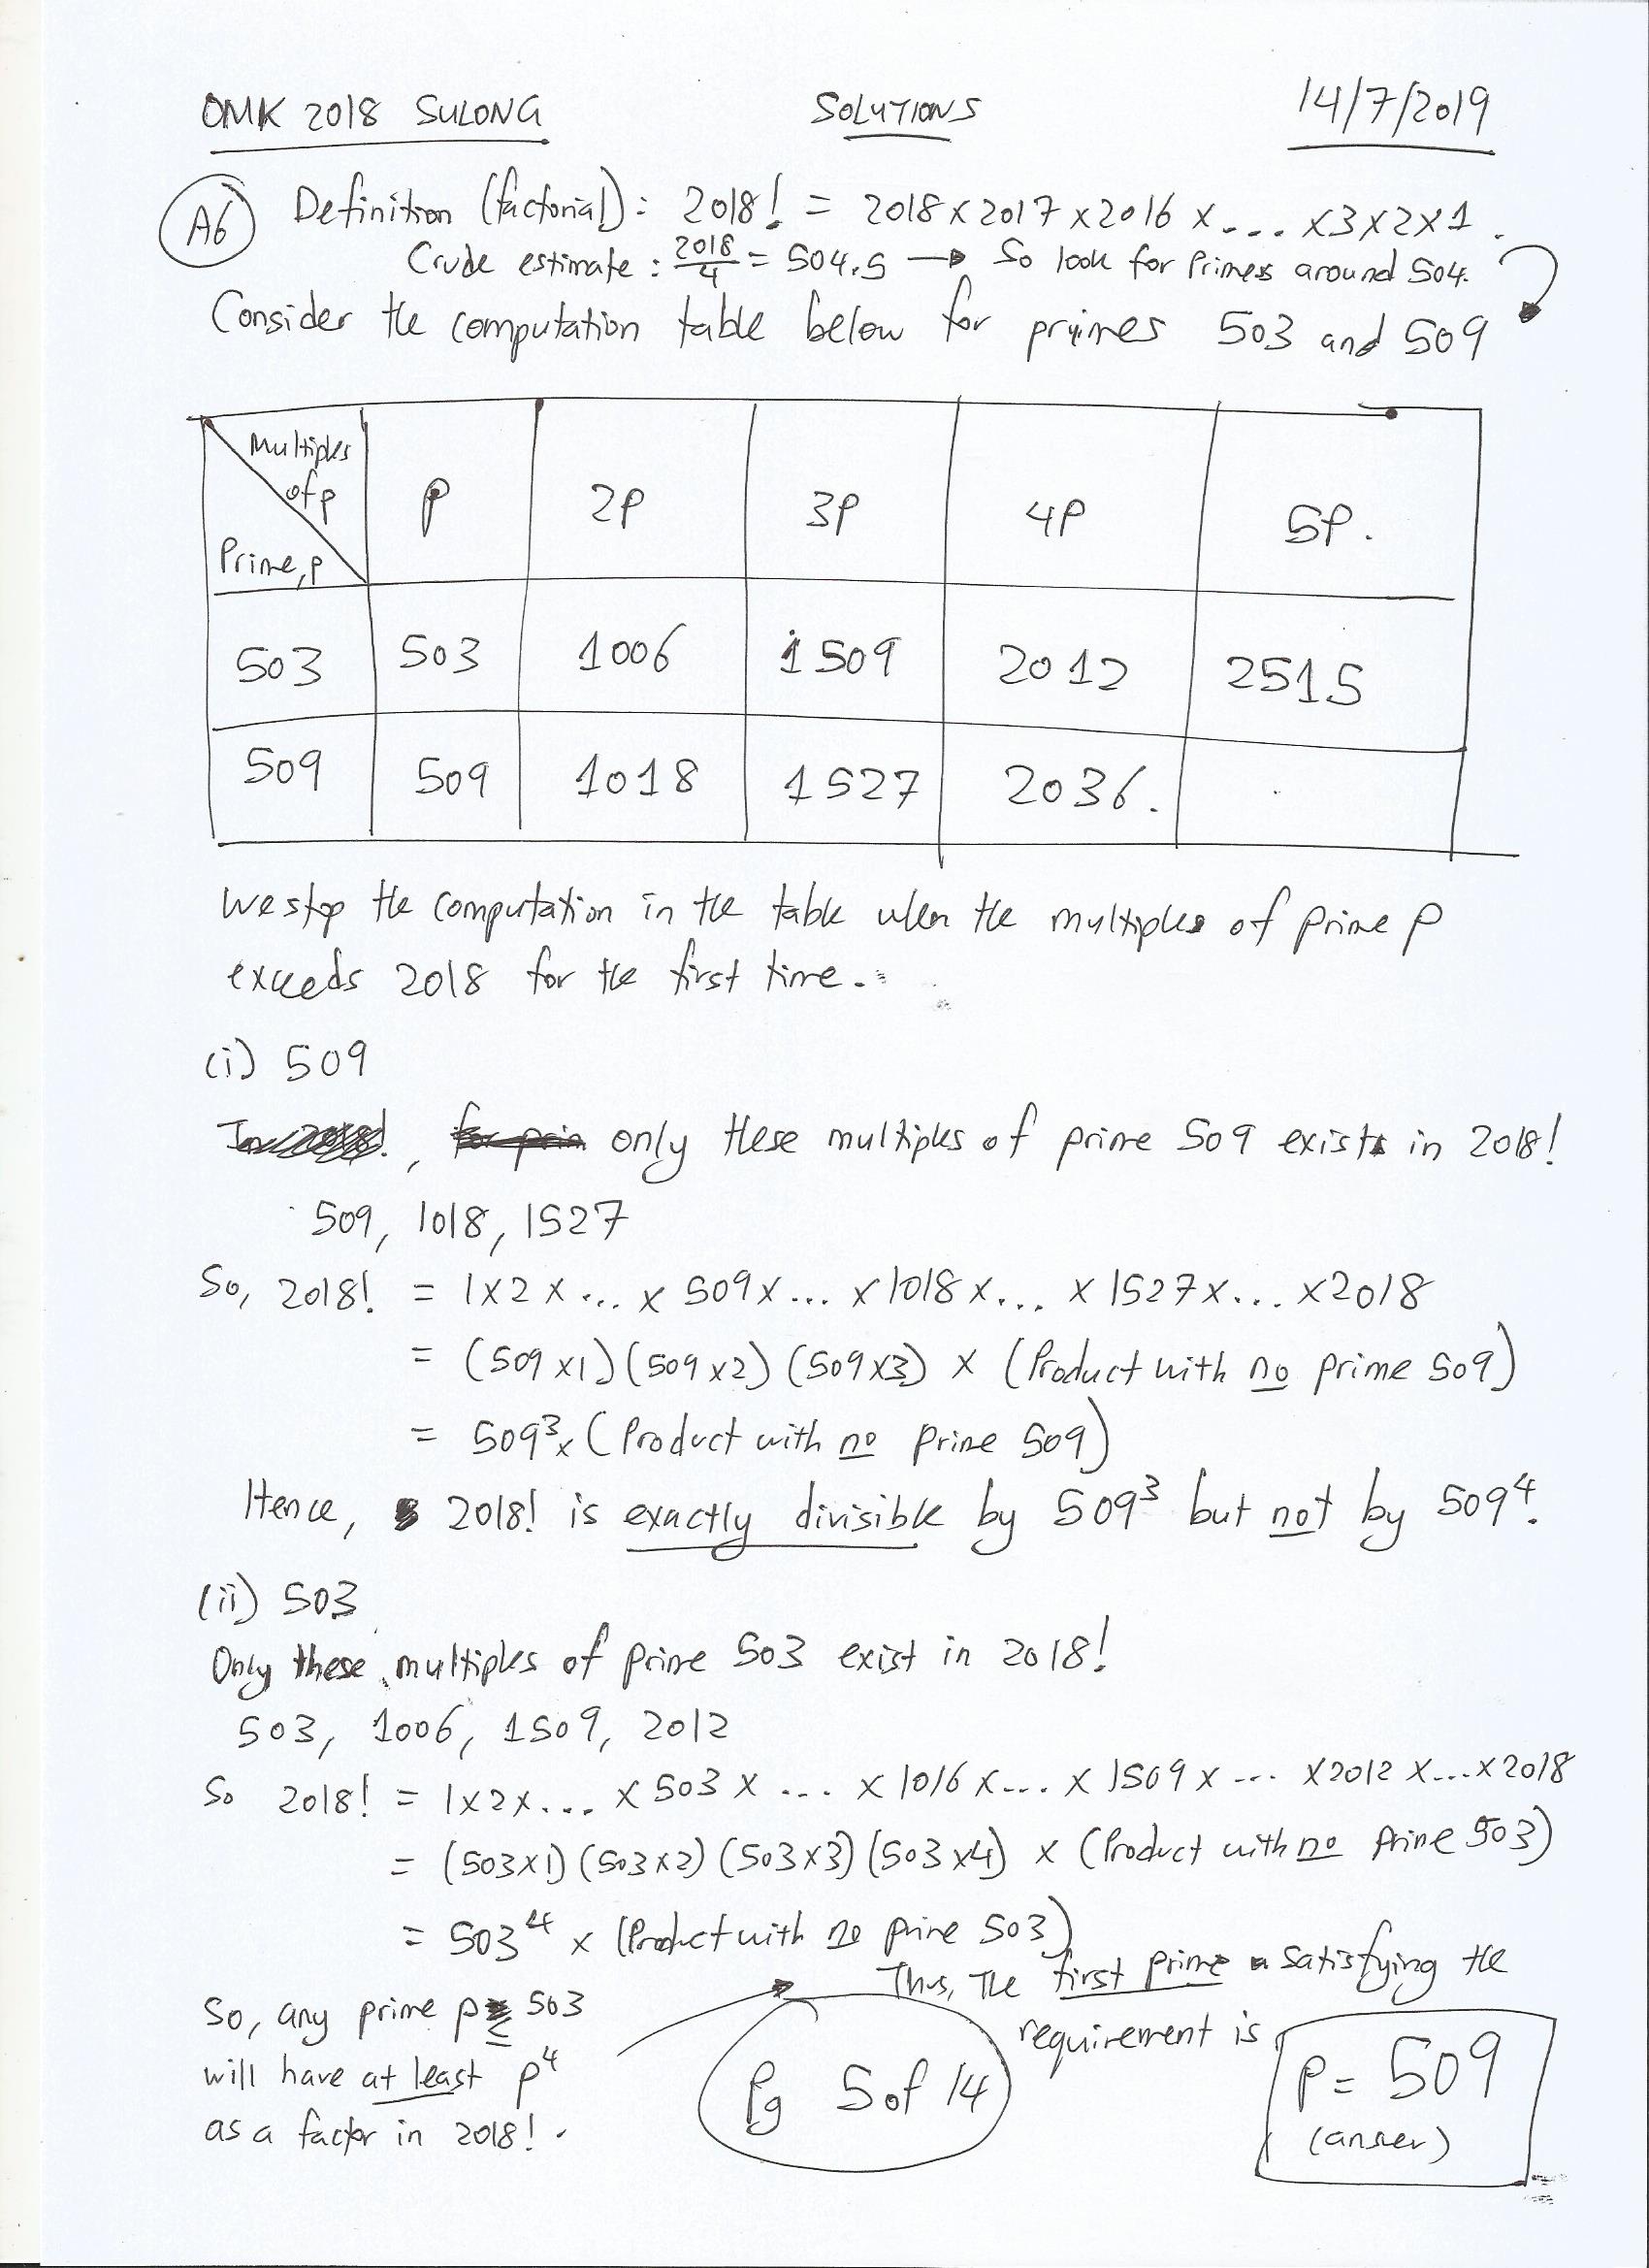 OMK 2018 SULONG SOLUTIONS 14/7/2019
A6 Definition (factorial): 2018! = 2018 x 2017 x 2016 x ... x3x2x1.
Crude estimate: 2018/4 = 504.5 → So look for Primes around 504.
Consider the computation table below for primes 503 and 509
Multiples of p
Prime, p
p 2p 3p 4p 5p.
503 503 1006 1509 2012 2515
509 509 1018 1527 2036.
We stop the computation in the table when the multiples of prime p
exceeds 2018 for the first time.
(i) 509
, only these multiples of prime 509 exists in 2018!
509, 1018, 1527
So, 2018! = 1x2x...x 509x... x1018x... x1527x... x2018
= (509x1)(509x2)(509x3) x (Product with no prime 509)
= 509³x (Product with no prime 509)
Hence, 2018! is exactly divisible by 509³ but not by 509⁴.
(ii) 503
Only these multiples of prime 503 exist in 2018!
503, 1006, 1509, 2012
So 2018! = 1x2x... x 503 x ... x 1016 x... x 1509 x ... x2012 x...x 2018
= (503x1)(503x2)(503x3)(503x4) x (Product with no Prime 503)
= 503⁴ x (Product with no prime 503)
So, any prime p ≤ 503
will have at least p⁴
as a factor in 2018!.
Thus, The first prime satisfying the
requirement is
p = 509
(answer)
Pg 5 of 14